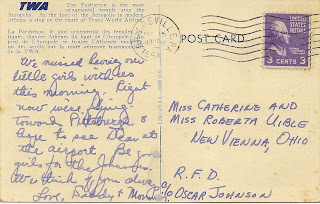 TWA The Parthenon, is the most
ornamental temple atop the
Acropolis. At the foot of the Acropolis is modern
Athens, a stop on the route of Trans World Airlines.
La Parthénon, le plus ornemental des temples
domine Athènes du haut de l'Acropole. Au
pied de l'Acropole se trouve l'Athènes moderne,
un des arrêts sur la route aérienne
de la TWA.
We missed having our
little girls with us
this morning. Right
now we're flying
toward Pittsburgh &
hope to see Alan at
the airport. Be good
girls for the Johnsons.
We think of you always
Love, Daddy & Mommy
POST CARD
3 CENTS 3
Miss Catherine and
Miss Roberta Uible
New Vienna Ohio
R.F.D.
c/o Oscar Johnson